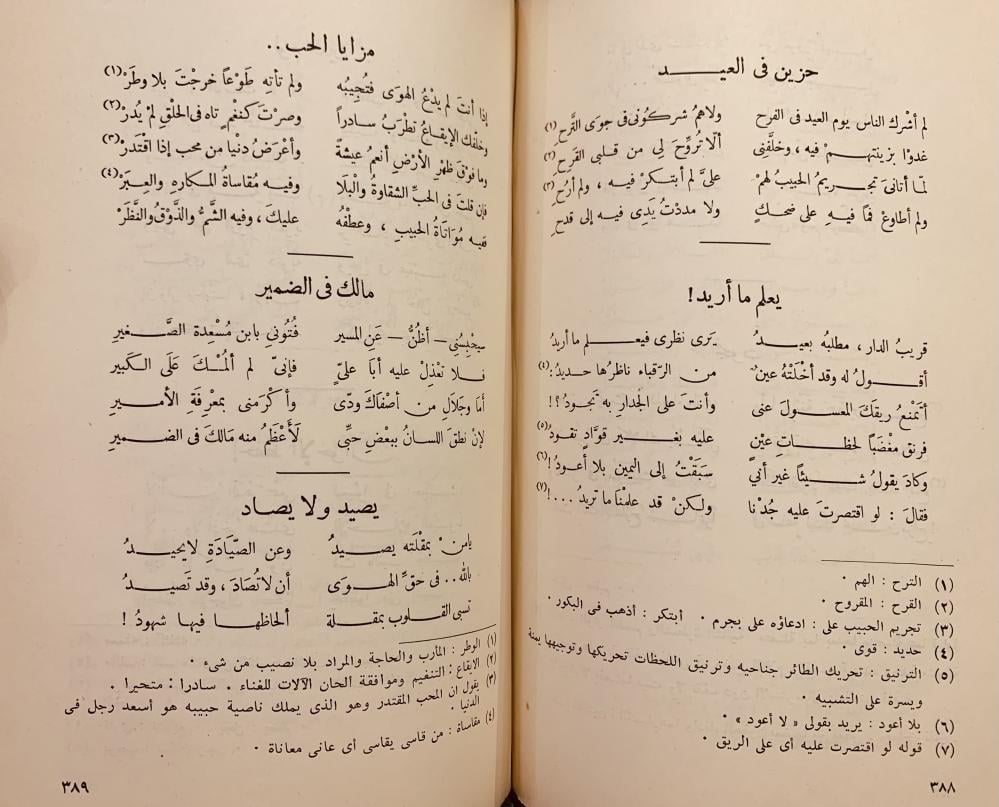 حزين فى العيـــــد
لم أشْرك الناس يوم العيد فى الفرح ولاهمُ شركُونى فى جوَى التَّرحِ (١)
غدوْا بزينتهـمْ فيه ، وخلَّفنِى ألّا تُروّحَ لِى من قلبِى القَرِحِ (٢)
لمّا أتانىَ تجـريمُ الحبيبُ لهمْ علىَّ لم أبتكرْ فيه ، ولم أرُحِ (٣)
ولم أطاوِعْ فمًا فيهِ على ضحكٍ ولا مددْتُ يَدِى فيه إلى قدحِ
يعلم ما أريد !
قريبُ الدار ، مطلبهُ بعيـــدُ يَرَى نظرى فيعـــلم ما أريدُ
أقـــولُ له وقد أخْلَتْهُ عينٌ من الرّقباء ناظرُها حديدُ : (٤)
أتمْنعُ ريقَكَ المعسـولَ عنى وأنتَ على الجدار به تجودُ ؟!
فرنق مغْضَبًا لحظـاتِ عيْنٍ عليه بغـــير قوَّادٍ تقودُ (٥)
وكادَ يقولُ شـــيئًا غير أنيِّ سَبَقْتُ إلى اليمين بلا أعودُ ! (٦)
فقالَ : لو اقتصرتَ عليه جُدْنا ولكنْ قد علمْنا ما تريدُ . . . ! (٧)
(١) الترح : الهم .
(٢) القرح : المقروح .
(٣) تجريم الحبيب على : ادعاؤه على بجرم . أبتكر : أذهب فى البكور .
(٤) حديد : قوى .
(٥) الترنيق : تحريك الطائر جناحيه وترنيق اللحظات تحريكها وتوجيهها يمنة
ويسرة على التشبيه .
(٦) بلا أعود : يريد بقولى « لا أعود » .
(٧) قوله لو اقتصرت عليه أى على الريق .
٣٨٨
مزايا الحب ..
إذا أنتَ لم يدْعُ الهوَى فتُجِيبُه ولم تأتهِ طَوْعًا خرجْتَ بلا وطَرْ (١)
وخلّفك الإيقاعُ تطْرَبُ سادراً وصرْتَ كنغْمٍ تاه فى الخلْقِ لمْ يُدرْ (٢)
وما فوْقَ ظهْرِ الأرْضِ أنعمُ عيشةً وأعْرَضُ دنيا من محب إذا اقْتَدرْ (٣)
فإن قلتَ فى الحبِّ الشقاوةُ والْبَلَا وفيه مُقاساةُ المكاره والعِبَرْ (٤)
ففيه مُوَاتَاةُ الحبيبِ ، وعطْفُه عليكَ ، وفيه الشَّمُّ والذَّوْقُ والنَّظَرْ
مالك فى الضمير
سيحْبِسُنِى — أظُنُّ — عَنِ المسير فُتُونِى بابن مُسْعِدة الصَّـغيرِ
فـلا تعْذِلْ عليه أبَا علىٍّ فإنىّ لم ألمْـكَ عَلَى الكَبيرِ
أمَا وجَلَالِ من أصْفَاكَ ودّى وأكْرَمنى بمعْرِفَةِ الأمـيرِ
لإنْ نطقَ اللسانُ ببعْضِ حبِّى لَأَعْظَمُ منه مَالَكَ فى الضميرِ
يصيد ولا يصاد
يامنْ بمقْلَته يصـيدُ وعن الصِّيَادَةِ لايحيـدُ
بالله .. فى حقِّ الهـوَى أن لاتُصَادَ ، وقد تَصيدُ
تسبى القلوب بمقـلة ألحاظها فيهـا شهودُ !
(١) الوطر : المأرب والحاجة والمراد بلا نصيب من شىء .
(٢) الايقاع : التنغيم وموافقة ألحان الآلات للغناء . سادرا : متحيرا .
(٣) يقول ان المحب المقتدر وهو الذى يملك ناصية حبيبه هو أسعد رجل فى
الدنيا .
(٤) مقاساة : من قاسى يقاسى أى عانى معاناة .
٣٨٩